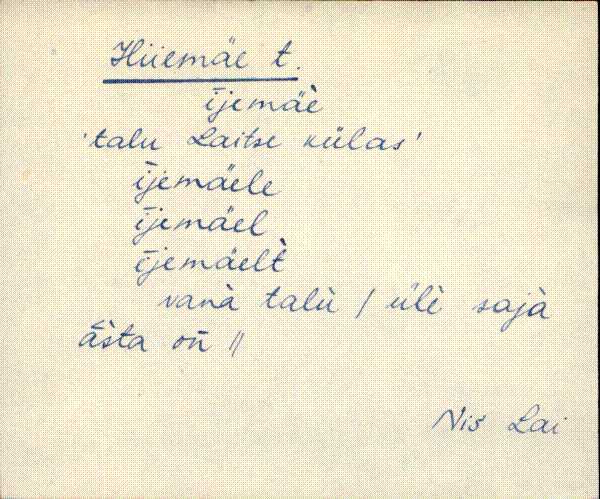 Hiiemäe t.
ījemäè
'talu Laitse külas'
ījemäele
ījemäel
ījemäelt̀
vanà talù / ülè sajà
āsta on̄ //
Nis Lai